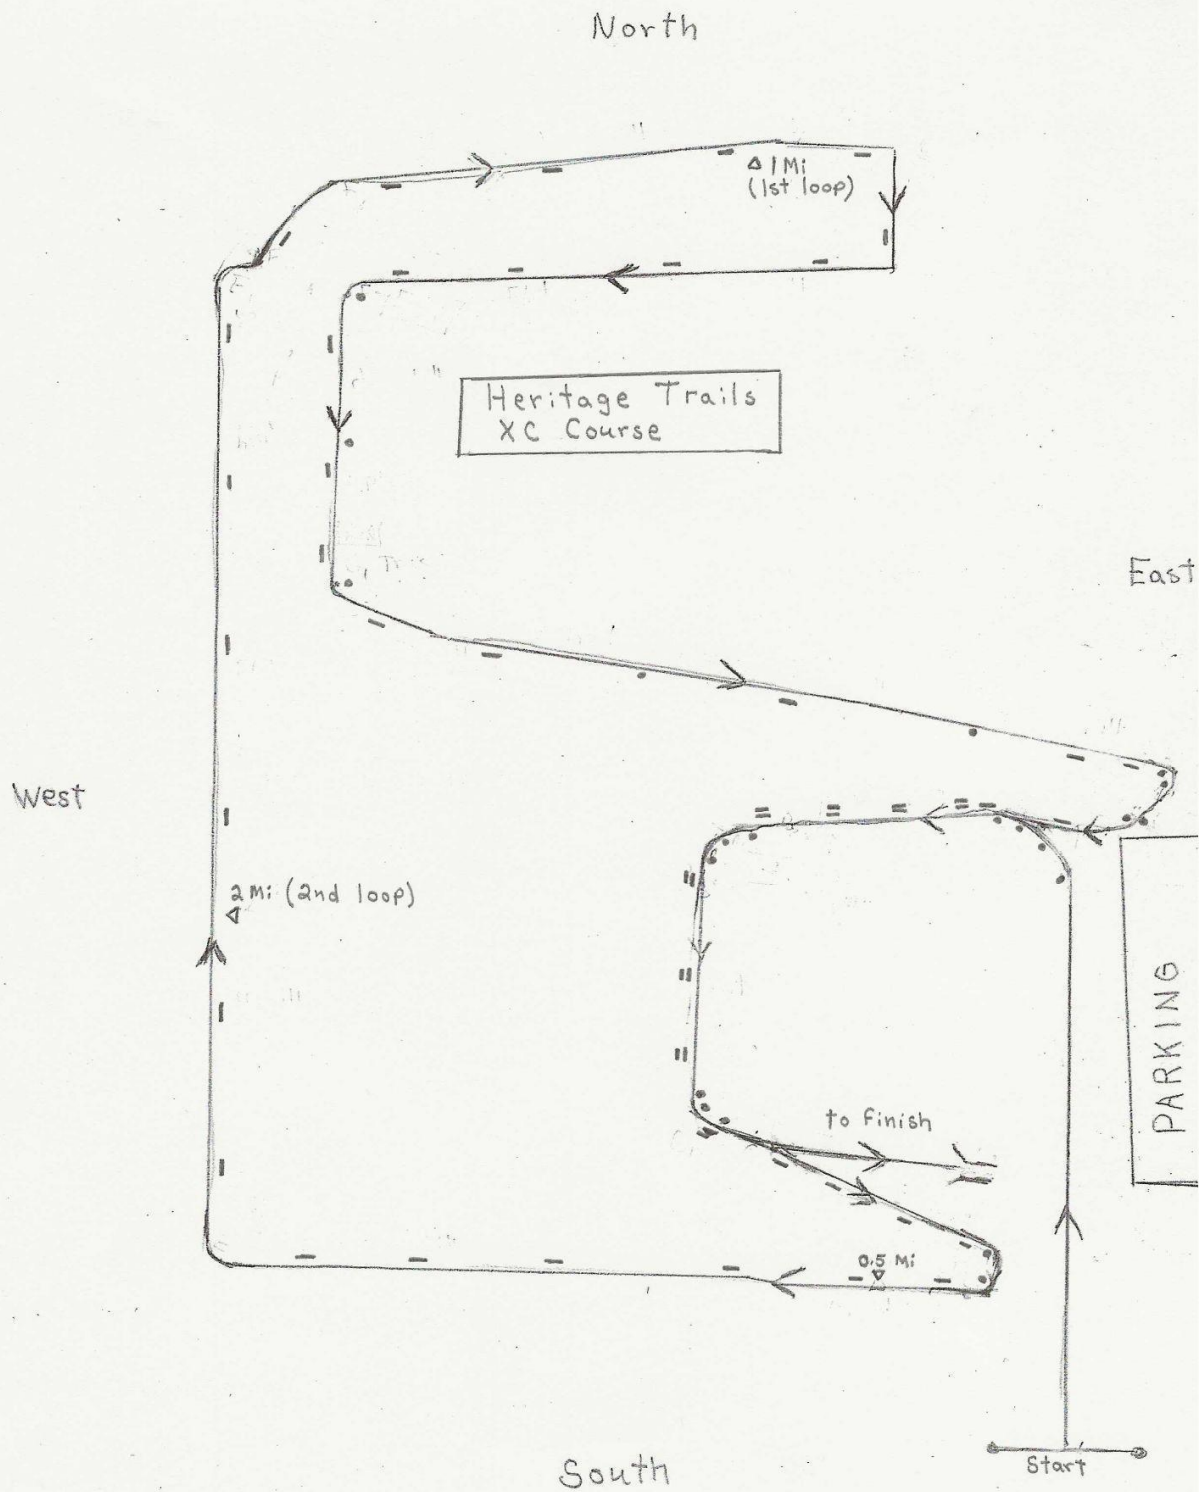 North
1 Mi
(1st loop)
Heritage Trails
XC Course
East
West
2 Mi (2nd loop)
PARKING
to finish
0.5 Mi
Start
South